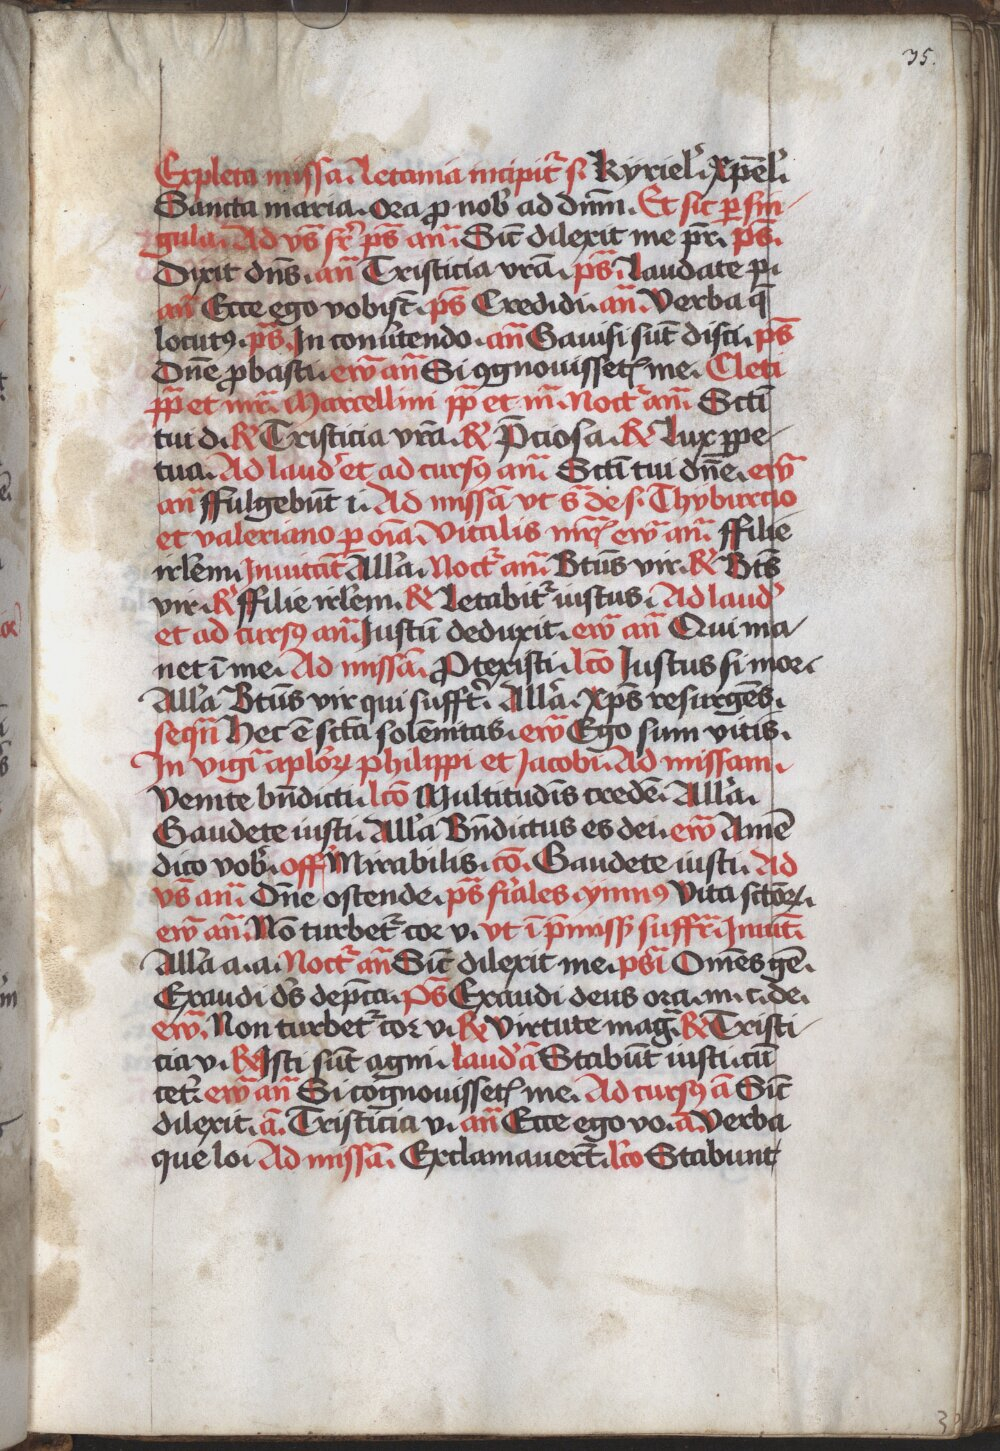 35.
Expleta missa. Letania incipit᷒ s̄. Kyriel᷒. Xp̄el᷒.
Sancta maria. ora ꝓ nob᷒ ad dn̄m. Et sic ꝑ sin
gula. Ad vs̄ fr᷒ ps̄ an̄. Sic̄ dilexit me pr̄. ps̄.
Dixit dn̄s. an̄ Tristicia vrā. ps̄. Laudate p.
an̄ Ecce ego vobisc̄. ps̄ Credidi. an̄. Verba q̄
locutꝰ. ps̄. In conu᷒tendo. an̄ Gauisi sūt disci. ps̄
Dn̄e ꝓbasti. ew̄ an̄ Si ꝯgnouissetꝭ me. Cleti
pp̄ et mr̄. Marcellini pp̄ et m̄. Noct᷒ an̄. Sctī
tui d. R̷ Tristicia vrā. R̷ P̄ciosa. R̷ Lux ꝑpe
tua. Ad laud᷒ et ad cursꝰ an̄. Sctī tui dn̄e. ew̄
an̄ ffulgebūt i. Ad missā vt s̄ de s. Thyburcio
et valeriano ꝑ oīa. Vitalis mr̄ꝭ ew̄ an̄. ffilie
irl᷒em. Inuitāt All᷒a. Noct᷒ an̄. Btūs vir. R̷ Btūs
vir. R̷ ffilie irl᷒em. R̷ Letabit᷒ iustus. Ad laud᷒
et ad cursꝰ an̄. Justū deduxit. ew̄ an̄ Qui ma
net ī me. Ad missā. Ꝓtexisti. lc̄o Justus si mor.
All᷒a Btūs vir qui suffc̄t. All᷒a. Xp̄s resurgēs.
seqn̄ Hec ē sctā solēnitas. ew̄ Ego sum vitis.
In vigi᷒a apl᷒oꝝ philippi et Jacobi. Ad missam.
Venite bn̄dicti. lc̄o Multitudīs credē. All᷒a.
Gaudete iusti. All᷒a Bn̄dictus es dei. ew̄ Amē
dico vob᷒. off᷒ Mirabilis. cō. Gaudete iusti. Ad
vs̄ an̄. Dn̄e ostende. ps̄ fi᷒ales. ymnꝰ Vita sctōꝝ.
ew̄ an̄. Nō turbet᷒ cor v. vt ī p̄missꝭ suffr̄. Inuit̄.
All᷒a a. a. Noct᷒ an̄ Sic̄ dilexit me. ps̄i Om̄es gē.
Exaudi d̄s dep̄ca. ps̄ Exaudi deus ora. m. c. de.
ew̄. Non turbet᷒ cor v. R̷ Virtute maḡ. R̷ Tristi
cia v. R̷ Isti sūt agni. laud᷒ ā Stabūt iusti. cū
cet᷒. ew̄ an̄ Si cognouissetꝭ me. Ad cursꝰ ā Sic̄
dilexit. ā. Tristicia v. an̄ Ecce ego vo. a. Verba
que lo. Ad missā. Exclamauer̄t. lc̄o Stabunt